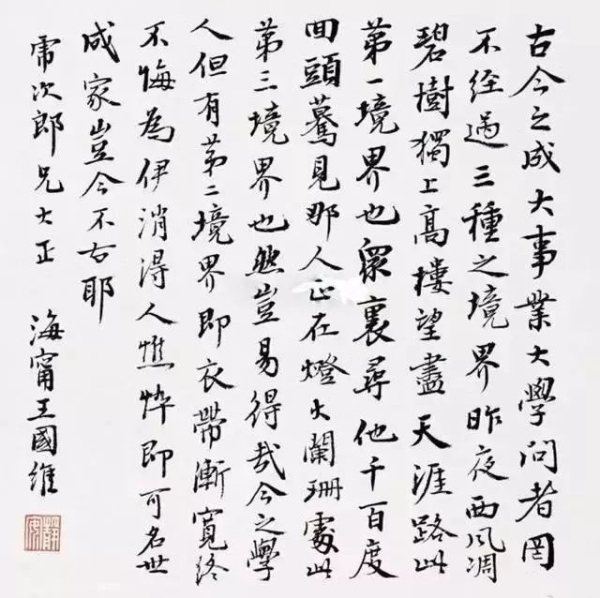 古今之成大事業大學問者罔
不经過三種之境界昨夜西风凋
碧樹獨上高樓望盡天涯路此
第一境界也眾裏尋他千百度
回頭驀見那人正在燈火闌珊處此
第三境界也然豈易得哉今之學
人但有第二境界即衣帶漸寬终
不悔為伊消得人憔悴即可名世
成家豈今不古耶
乕次郎兄大正 海甯王國維
靜安